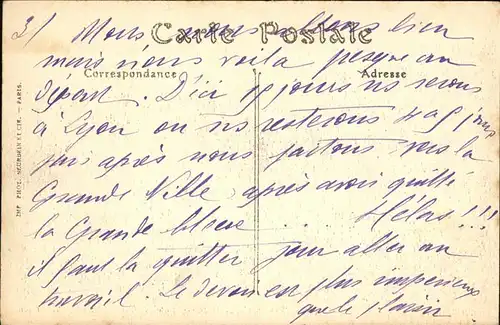 3/ Nous nous allons bien
Carte Postale
mais nous voila presque au
Correspondance
Adresse
départ. D'ici jours ns serons
à Lyon ou ns resterons 4 a 5 jours
puis après nous partons vers la
Grande Ville, après avoir quitté
la Grande bleue .... Hélas!!!
il faut la quitter pour aller au
travail. Le devoir est plus impérieux
que le plaisir
IMP. PHOT. NEURDEIN ET CIE. — PARIS.